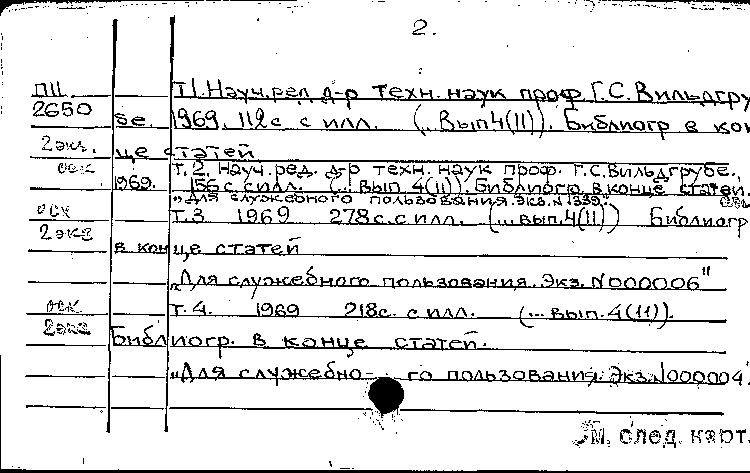 2.
ПII. Т.1. Науч. ред. д-р техн. наук проф. Г.С. Вильдгру
2650 бе. 1969. 112с. с илл. (...Вып.4(11)). Библиогр. в кон
2экз. це статей.
оск Т.2. Науч. ред. д-р техн. наук проф. Г.С. Вильдгрубе.,
1969. 156с. с илл. (... Вып. 4(11)). Библиогр. в конце статей.
"Для служебного пользования. Экз. N 1339."
оск Т.3 1969 278с. с илл. (...вып.4(11)) Библиогр
2экз в конце статей
"Для служебного пользования. Экз. N000006"
оск Т.4. 1969 218с. с илл. (... вып. 4(11)).
2экз Библиогр. в конце статей.
"Для служебно- го пользования. Экз. N000004"
См. след. карт.